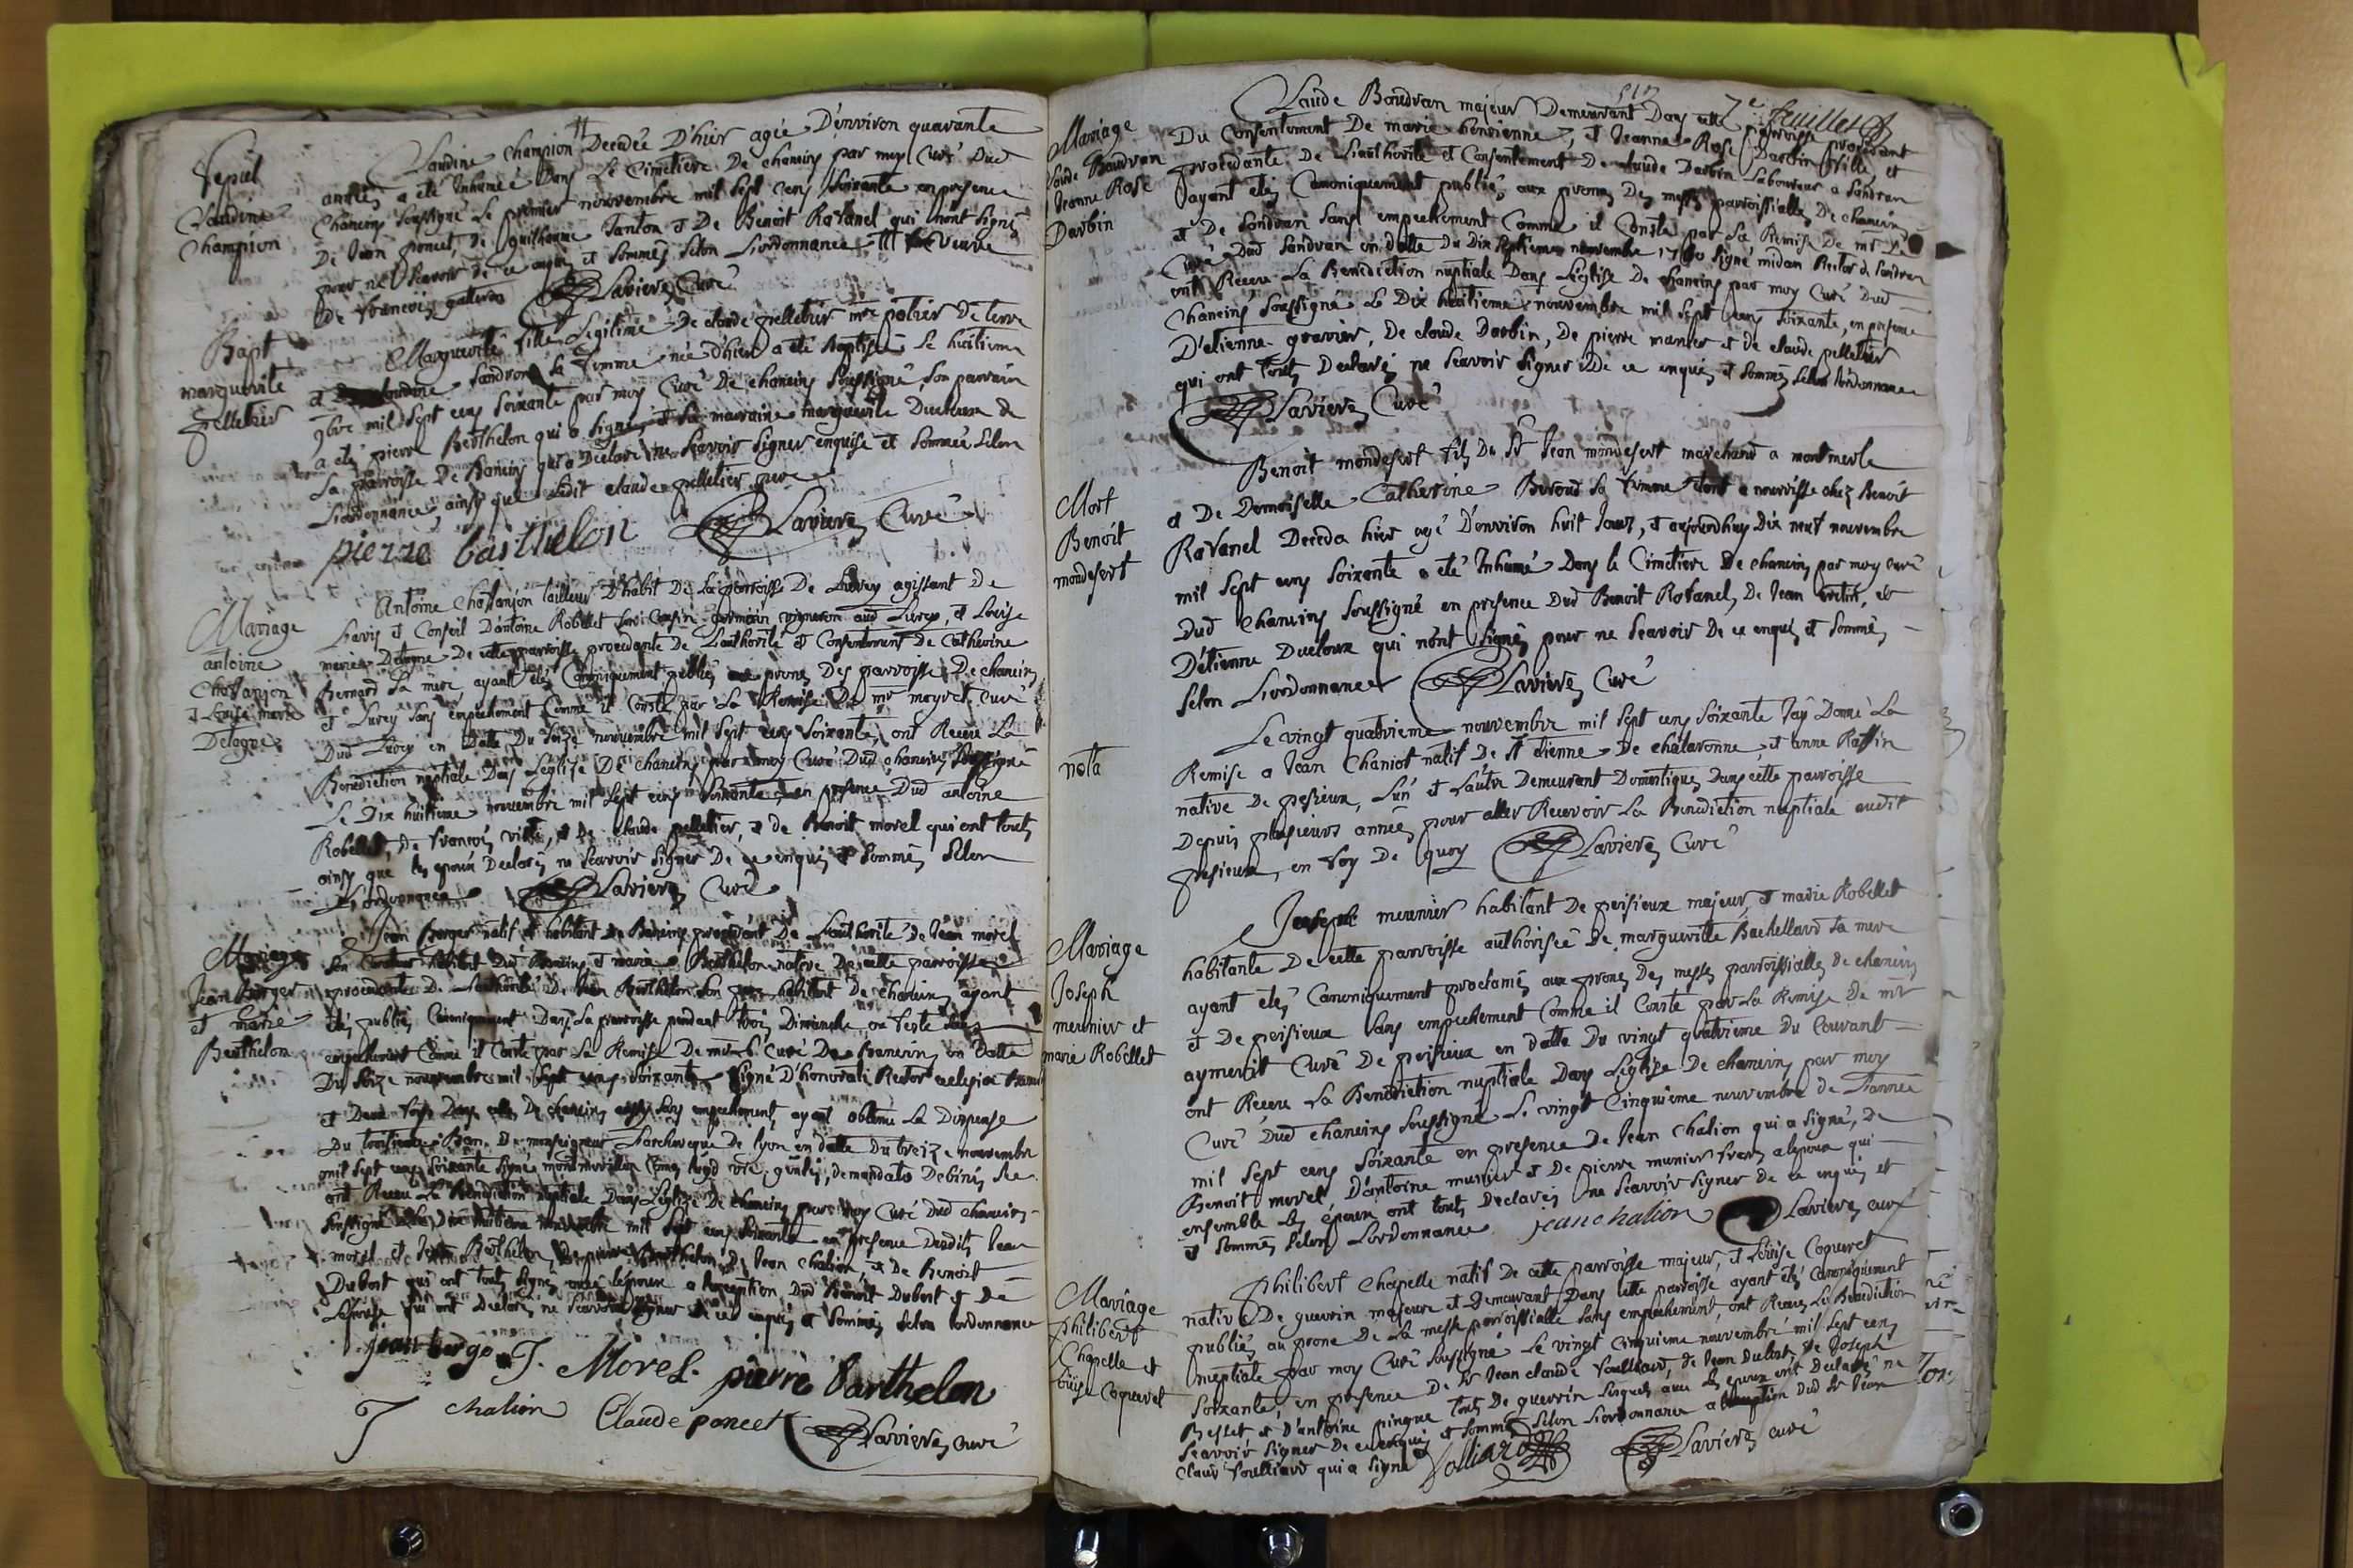 Sepul
Claudine
Champion
Claudine champion ╫ Decedée D'hier agée D'environ quarante
années a eté Inhumée Dans Le Cimetiere De chaneins par moy Curé Dud
Chaneins Soussigné Le premier nouvembre mil Sept cens Soixante en presence
De Jean poncet, De guilhaume Tanton et De Benoit Ravanel qui n'ont signé
pour ne Scavoir de ce enquis et Sommés Selon L'ordonnance ╫ veuve
De francois
Lavieres Curé
Bapt
marguerite
pelletier
Marguerite fille Legitime De claude pelletier mtre potier De terre
et claudine Sandron Sa femme née d'hier a eté Baptisée Le huitieme
9bre mil Sept cens Soixante par moy Curé De chaneins Soussigné, Son parrain
a eté pierre Berthelon qui a signé, et Sa marraine marguerite Ducloux de
La parroisse De Baneins qui a Declaré ne Scavoir signer enquise et Sommée Selon
L'ordonnance ainsy que Ledit claude pelletier pere
pierre barthelon Lavieres Curé
Mariage
antoine
Chatanjon
et Louise marie
Detogne
Antoine Chatanjon tailleur D'habit De La parroisse De Lurcy agissant de
L'avis et Conseil D'antoine Robellet Son Cousin germain vigneron aud Lurcy, et Louise
marie Detogne De cette parroisse procedante de L'authorité et Consentement De Catherine
Bernard Sa mere, ayant étés Canoniquement publiés aux prones Des parroisses De chaneins
et Lurcy Sans empechement Comme il Conste par La Remise De mr moyret Curé
Dud Lurcy en Datte Du Seize nouvembre mil Sept cens Soixante, ont Receu La
Benediction nuptiale Dans L'eglise De chaneins par moy Curé Dud chaneins Soussigné
Le Dix huitieme nouvembre mil Sept cens Soixante, en presence Dud antoine
Robellet, De francois vitte, et De claude pelletier, et de Benoit morel qui ont touts
ainsy que les epoux Declarés ne Scavoir signer De ce enquis et Sommés Selon
L'ordonnance Lavieres Curé
Mariage
Jean Berger
et marie
Berthelon
Jean Berger natif et habitant de Baneins procedant De L'authorité De Jean morel
Son Curateur habitant Dud Baneins et marie Berthelon native De cette parroisse
procedante De L'authorité De Jean Berthelon Son pere habitant De chaneins ayant
étés publiés Canoniquement Dans La parroisse pendant trois Dimanche ou feste Sans
empechement Comme il Conste par La Remise De mr Curé De Baneins en Datte
Du Seize nouvembre mil Sept cens Soixante Signé D'honorati Rector
et Deux fois Dans celle De chaneins aussy Sans empechement ayant obtenu La Dispense
Du troisieme Ban De monseigneur L'archeveque De Lyon en datte Du treize nouvembre
mil Sept cens Soixante Signé montmorillon
ont Receu La Benediction nuptiale Dans L'eglise De chaneins par moy Curé Dud chaneins
Soussigné Le Dix huitieme nouvembre mil Sept cens Soixante en presence Desdits Jean
morel et Jean Berthelon, De pierre Berthelon, De Jean Chalion, et De Benoit
Dubost qui ont touts signés avec l'epoux a l'exception Dud Benoit Dubost et De
L'epouse qui ont Declarés ne Scavoir signer de ce enquis et Sommés Selon L'ordonnance
jean bergo J. Morel. pierre barthelon
J chalion Claude poncet Lavieres curé
517 7e feuillet
Mariage
Claude Baudran
Jeanne Rose
Darbin
Claude Baudran majeur Demeurant Dans cette parroisse procedant
Du Consentement De marie benvienne, et Jeanne Rose Darbin fille, et
procedante De L'authorité et Consentement De claude Darbin Laboureur a Sandran
ayant étés Canoniquement publiés aux prones Des messes parroissialles De chaneins
et De Sandran Sans empechement Comme il Conste par La Remise De mr Le
Curé Dud Sandran en datte Du Dix Septieme nouvembre 1760 Signé midan Rector de Sandran
ont Receu La Benediction nuptiale Dans L'eglise De chaneins par moy Curé Dud
Chaneins Soussigné Le Dix huitieme nouvembre mil Sept cens Soixante, en presence
D'etienne gravier, De claude Darbin, De pierre manier et de claude pelletier
qui ont touts Declarés ne Scavoir signer De ce enquis et Sommés Selon l'ordonnance
Lavieres Curé
Mort
Benoit
mondesert
Benoit mondesert fils Du Sr Jean mondesert marchand a montmerle
et De Demoiselle Catherine Beroud Sa femme etant a nourrisse chez Benoit
Ravanel Deceda hier agé D'environ huit Jours, et aujourdhuy Dix neuf nouvembre
mil Sept cens Soixante a eté Inhumé Dans le Cimetiere De chaneins par moy curé
Dud Chaneins Soussigné en presence Dud Benoit Ravanel, De Jean, et
D'étienne Ducloux qui n'ont signés pour ne Scavoir De ce enquis et Sommés
Selon L'ordonnance Lavieres Curé
nota
Le vingt quatrieme nouvembre mil Sept cens Soixante J'ay Donné La
Remise a Jean Chaniot natif De St etienne De chalaronne et anne Raffin
native De pesieux, L'un et L'autre Demeurant Domestiques Dans cette parroisse
Depuis plusieurs années pour aller Recevoir La Benediction nuptiale audit
pesieux, en foy De quoy Lavieres Curé
Mariage
Joseph
meunier et
marie Robellet
Joseph meunier habitant De peisieux majeur, et marie Robellet
habitante De cette parroisse authorisée De marguerite Bachellard Sa mere
ayant étés Canoniquement proclamés aux prones Des messes parroissialles de chaneins
et De peisieux Sans empechement Comme il Conste par La Remise De mr
aymersit Curé De peisieux en datte Du vingt quatrieme Du Courant
ont Receu La Benediction nuptiale Dans L'eglise De chaneins par moy
Curé Dud chaneins Soussigné Le vingt Cinquieme nouvembre de L'année
mil Sept cens Soixante en presence De Jean Chalion qui a signé, De
Benoit morel, D'antoine munier et De pierre munier frere a L'epoux qui
ensemble Les epoux ont touts Declarés ne Scavoir signer De ce enquis et
et Sommés Selon L'ordonnance jean chalion Lavieres curé
Mariage
philibert
Chapelle et
Louise Coqueret
Philibert Chapelle natif De cette parroisse majeur, et Louise Coqueret
native De guerrin majeure et Demeurant Dans cette parroisse ayant étés Canoniquement
publiés au prone De La messe parroissialle Sans empechement ont Receu La Benediction
nuptiale par moy Curé Soussigné Le vingt Cinquieme nouvembre mil Sept cens
Soixante, en presence De Sr Jean claude foulliard, De Jean Dubost, De Joseph
Besset et D'antoine pingue touts De guerrin Lesquels avec Les epoux ont Declarés ne
Scavoir signer De ce enquis et Sommés Selon L'ordonnance a L'exception Dud Sr Jean
Claude foulliard qui a signé folliard Lavieres curé